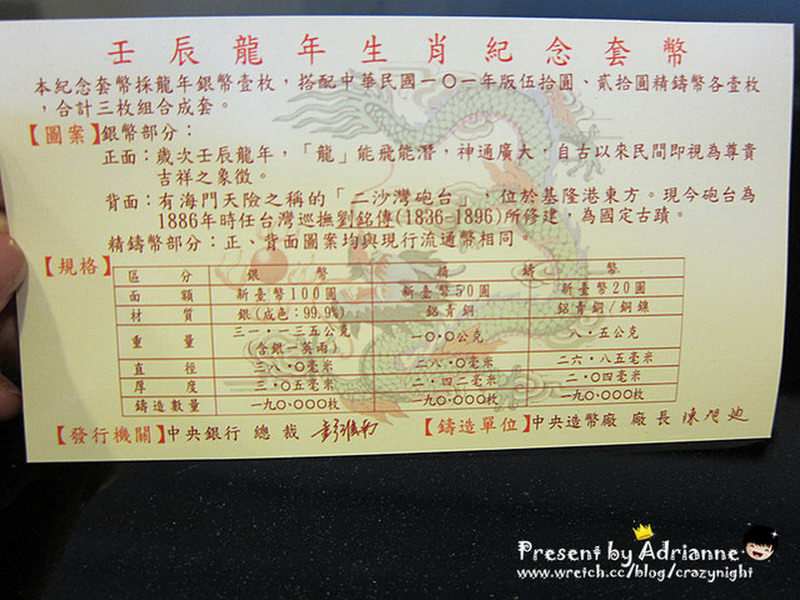 壬辰龍年生肖紀念套幣
本紀念套幣採龍年銀幣壹枚，搭配中華民國一○一年版伍拾圓、貳拾圓精鑄幣各壹枚
，合計三枚組合成套。
【圖案】銀幣部分：
正面：歲次壬辰龍年，「龍」能飛能潛，神通廣大，自古以來民間即視為尊貴
吉祥之象徵。
背面：有海門天險之稱的「二沙灣砲台」，位於基隆港東方。現今砲台為
1886年時任台灣巡撫劉銘傳(1836-1896)所修建，為國定古蹟。
精鑄幣部分：正、背面圖案均與現行流通幣相同。
【規格】
區分 銀幣 精鑄幣
面額 新臺幣100圓 新臺幣50圓 新臺幣20圓
材質 銀(成色：99.9%) 鋁青銅 鋁青銅/銅鎳
重量 三一·一三五公克 一○·○公克 八·五公克
(含銀一英兩)
直徑 三八·○毫米 二八·○毫米 二六·八五毫米
厚度 三·○五毫米 二·四二毫米 二·○四毫米
鑄造數量 一九○,○○○枚 一九○,○○○枚 一九○,○○○枚
【發行機關】中央銀行 總裁 彭淮南 【鑄造單位】中央造幣廠 廠長 陳旭迪
Present by Adrianne
www.wretch.cc/blog/crazynight